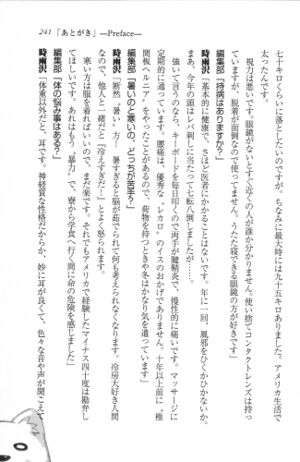 241 「あとがき」 ―Preface―
七十キロくらいに落としたいのですが。ちなみに最大時には九十五キロありました。アメリカ生活で
太ったんです。
視力は悪いです。眼鏡がないとすぐ近くの人が誰か分かりません。使い捨てコンタクトレンズは持っ
ていますが、脱着が面倒なので使ってません。うたた寝できる眼鏡の方が好きです」
編集部「持病はありますか?」
時雨沢「基本的に健康で、さほど医者にかかることはないです。年に一回、風邪をひくかひかないか。
まあ、今年の頭はレバ刺しに当たって七転八倒しましたが……。
強いて言うのなら、キーボードを毎日叩くので両手が腱鞘炎で、慢性的に痛いです。マッサージに
定期的に通っています。腰痛は、優秀な〝レカロ〟のイスのおかげでありません。十年以上前に、椎
間板ヘルニア〟をやったことがあるので、荷物を持つときや冬はかなり気を遣っています」
編集部「暑いのと寒いの、どっちが苦手?」
時雨沢「断然〝暑い〟方! 暑すぎると脳が茹でられて何も考えられなくなります。冷房大好き人間
なので、他人と一緒だと「冷えすぎだ!」とよく怒られます。
寒い方は服を着ればいいので、まだ楽です。それでもアメリカで経験したマイナス四十度は勘弁し
てほしいです。あれはもう〝暴力〟で、寮から学食へ行く間に命の危険を感じました」
編集部「体の悩み事はある?」
時雨沢「体重以外だと、耳です。神経質な性格だからか、妙に耳が良くて、色々な音や声が聞こえて